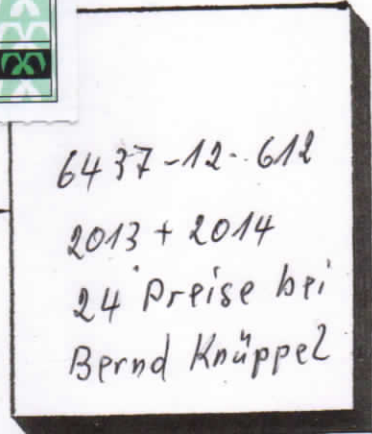 6437-12-612
2013 + 2014
24 Preise bei
Bernd Knüppel